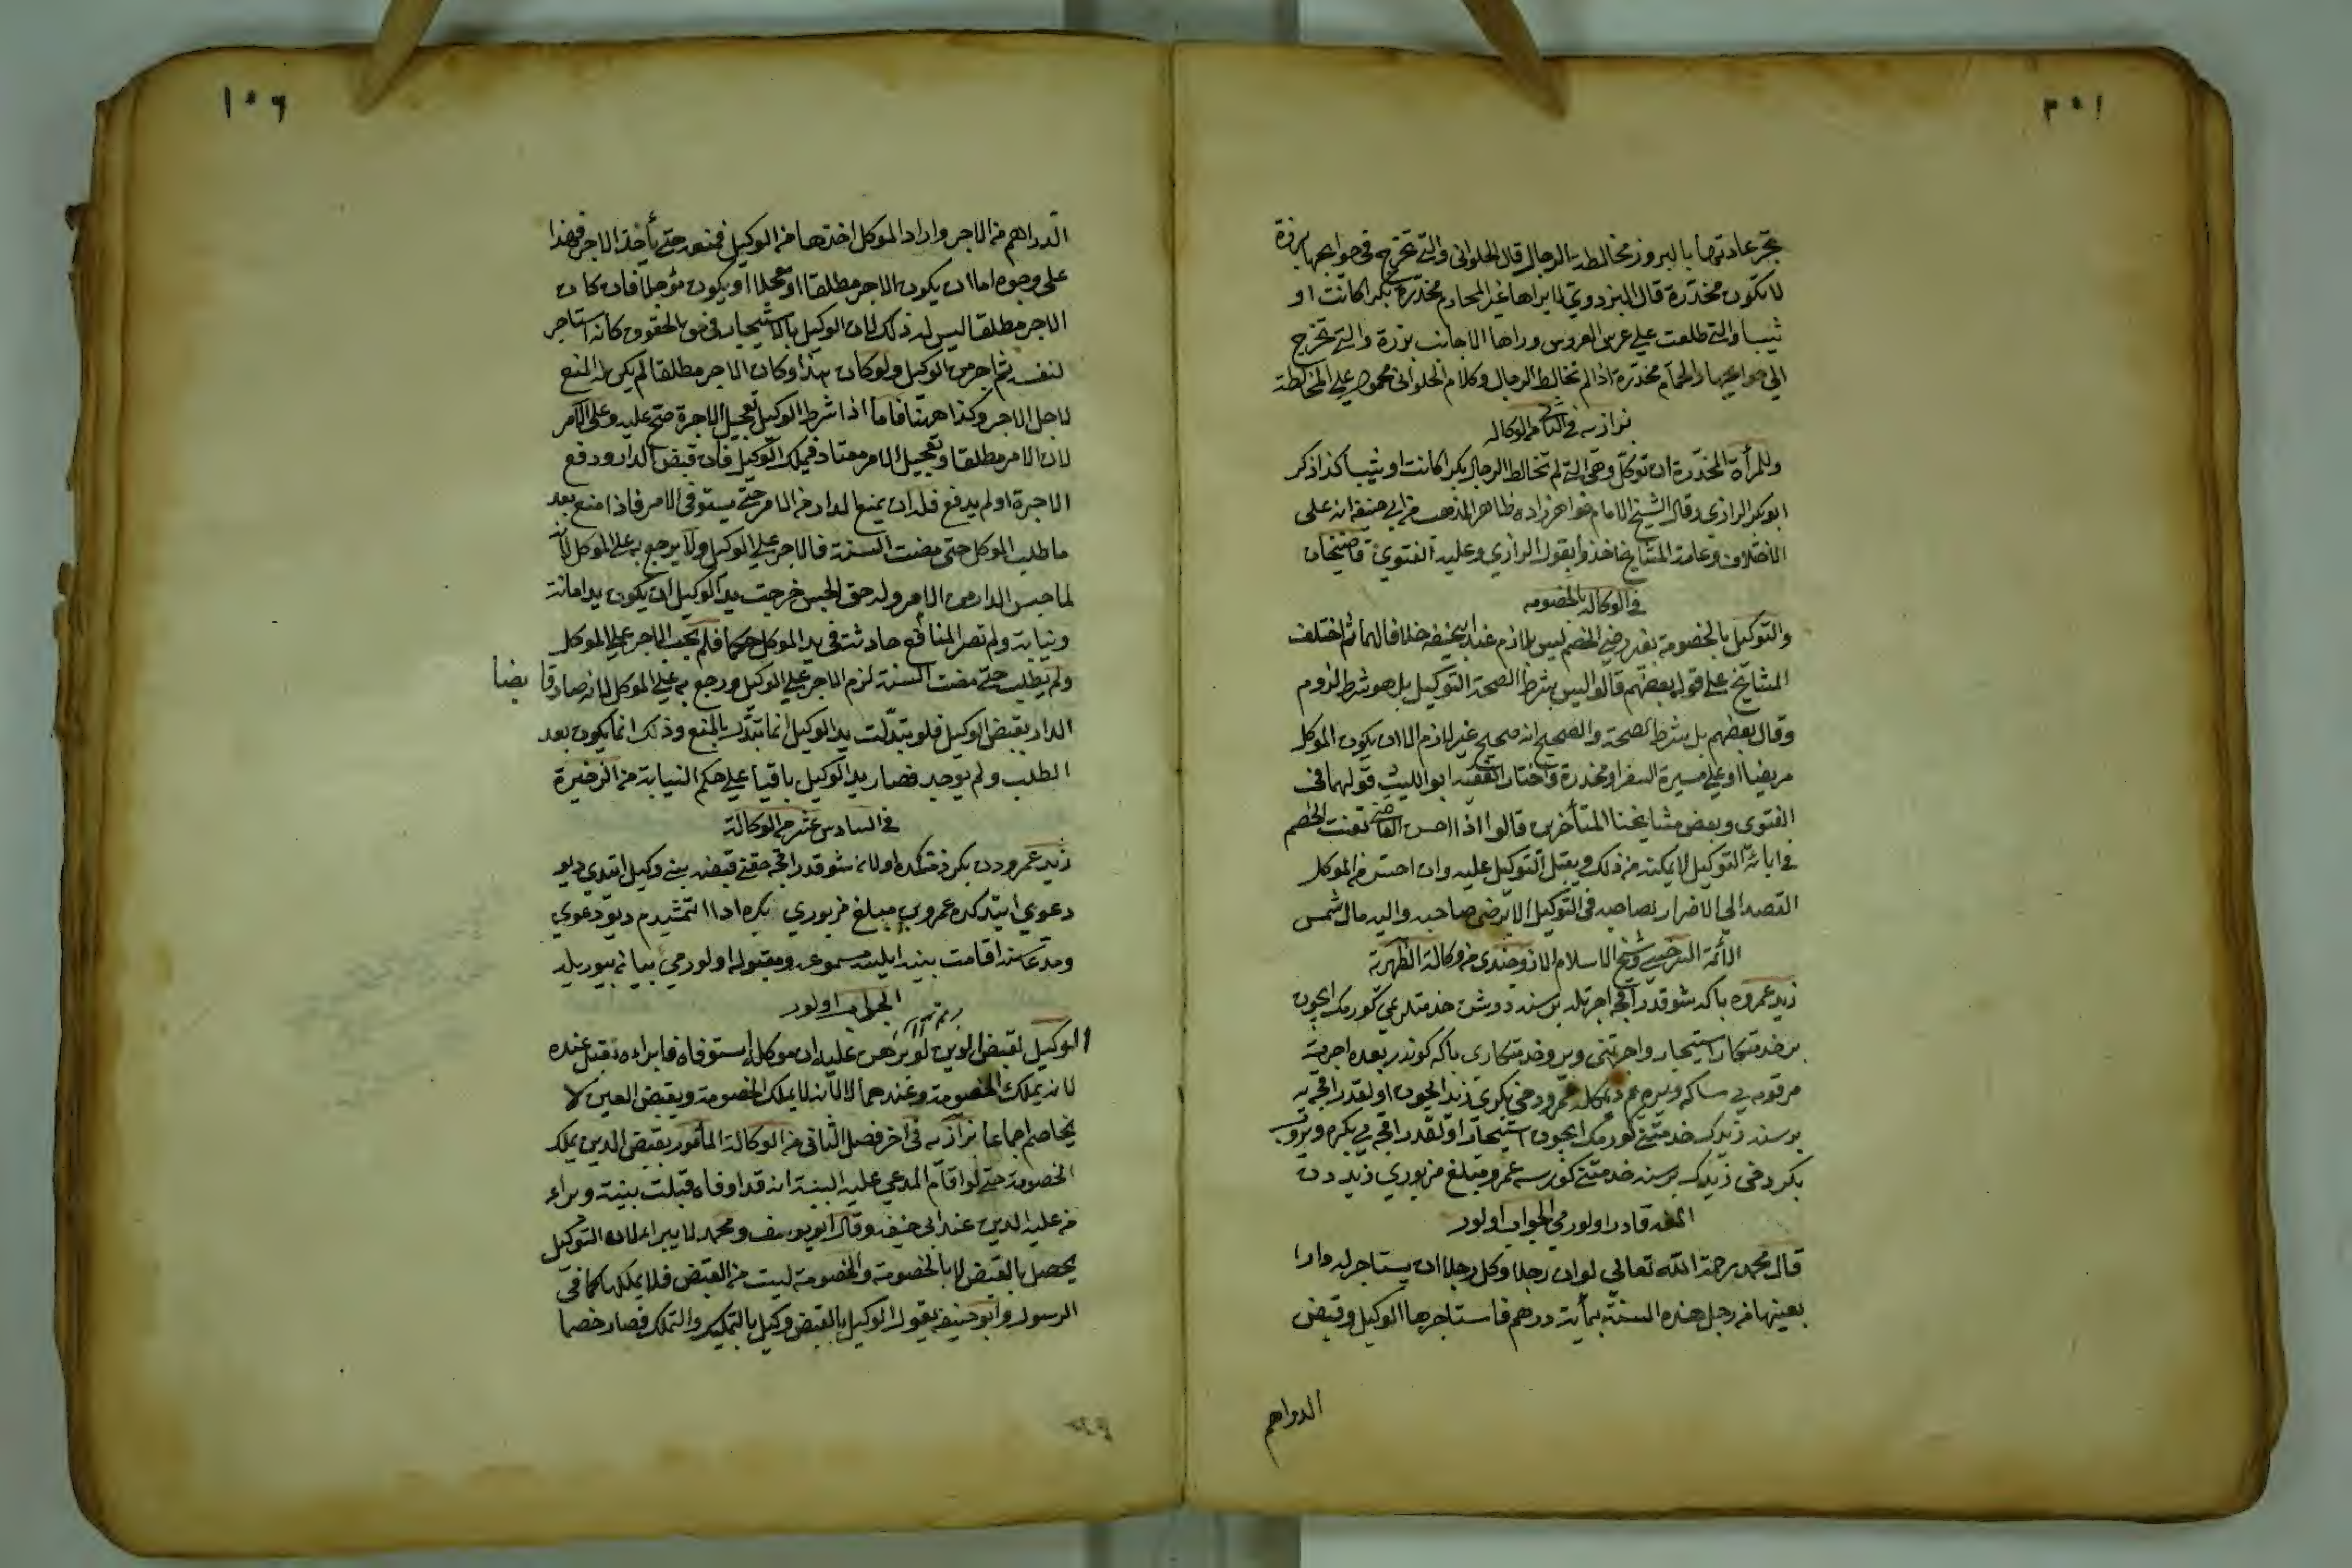 ١٥٣
تجر عادتها بالبروز ومخالطة الرجال قال الحلواني والتي تخرج في حوايجها برزة
لا تكون مخدرة قال البزدوي لا يراها غير المحارم مخدرة بكرا كانت او
ثيبا والتي طلعت على عرس العروس وراها الاجانب برزة والتي تخرج
الى حوايجها والحمام مخدرة اذا لم تخالط الرجال وكلام الحلواني محمول على المخالطة
بزازيه في الثاني من الوكاله
وللمرأة المخدرة ان توكل وهي التي لم تخالط الرجال بكرا كانت او ثيبا كذا ذكر
ابو بكر الرازي وقال الشيخ الامام خواهر زاده ظاهر المذهب عن ابي حنيفة انه على
الاختلاف وعامة المشايخ اخذوا بقول الرازي وعليه الفتوى قاضيخان
في الوكالة بالخصومه
والتوكيل بالخصومة بغير رضى الخصم ليس بلازم عند ابيحنيفه خلافا لهما ثم اختلف
المشايخ على قوله بعضهم قالوا ليس بشرط لصحة التوكيل بل هو شرط لزوم
وقال بعضهم بل شرط الصحة والصحيح انه صحيح غير لازم الا ان يكون الموكل
مريضا او على مسيرة السفر او مخدرة واختار الفقيه ابو الليث قولهما في
الفتوى وبعض مشايخنا المتأخرين قالوا اذا احس القاضي تعنت الخصم
في ابائه التوكيل لا يمكنه من ذلك ويقبل التوكيل عليه وان احس من الموكل
القصد الى الاضرار بصاحبه في التوكيل الا برضى صاحبه واليه مال شمس
الأئمة السرخسي وشيخ الاسلام الاوزجندي من وكالة الظهيرية
زيد عمروه باكه شو قدر اقچه اجرتله بر سنه دوشن خدمتلرمي كورمك ايچون
بر خدمتكار استيجار واجرتنى وير وخدمتكاري باكه كوندر بعده اجرت
مرقومه يي ساكه ويره يم ديمكله عمرو دخي بكري زيد ايچون اولقدر اقچه يه
بر سنه زيدك خدمتنى كورمك ايچون استيجار اولقدر اقچه يي بكره ويروب
بكر دخي زيدك بر سنه خدمتنى كورسه عمرو مبلغ مزبوري زيد دن
المغه قادر اولورمي الجواب اولور
قال محمد رحمة الله تعالى لو ان رجلا وكل رجلا ان يستاجر له دارا
بعينها من رجل هذه السنة بمأية درهم فاستاجرها الوكيل وقبض
الدراهم
١٥٤
الدراهم من الاجر واراد الموكل اخذها من الوكيل فمنعه حتى يأخذ الاجر فهذا
على وجوه اما ان يكون الاجر مطلقا او معجلا او يكون مؤجلا فان كان
الاجر مطلقا ليس له ذلك لان الوكيل بالاستيجار في حق الحقوق كانه استاجر
لنفسه ثم اجر من الوكيل ولو كان هكذا وكان الاجر مطلقا لم يكن له المنع
لاجل الاجر وكذا ههنا فاما اذا شرط الوكيل تعجيل الاجرة صح عليه وعلى الآمر
لان الامر مطلقا وتعجيل الامر معتاد فيملك الوكيل فان قبض الدار ودفع
الاجرة او لم يدفع فله ان يمنع الدار من الامر حتى يستوفي الامر فاذا منع بعد
ما طلب الموكل حتى مضت السنة فالاجر على الوكيل ولا يرجع به على الموكل لانه
لما حبس الدار من الآمر وله حق الحبس خرجت يد الوكيل ان يكون يد امانة
ونيابة ولم تصر المنافع حادثة في يد الموكل حكما فلم يجب الاجر على الموكل
ولم يطلب حتى مضت السنة لزم الاجر على الوكيل ورجع به على الموكل لانه صار قابضا
الدار بقبض الوكيل فلو تبدلت يد الوكيل انما تبدل بالمنع وذلك انما يكون بعد
الطلب ولم يوجد فصار يد الوكيل باقيا على حكم النيابة من الذخيرة
في السادس عشر من الوكالة
زيد عمرودن بكر ذمتنده اولان شو قدر اقچه حقنى قبضه بنى وكيل ايتدى ديو
دعوي ايتدكده عمرو بن مبلغ مزبوري بكره ادا ايتمشيدم ديو دعوي
ومدعاسنه اقامت بينه ايلسه مسموعه ومقبوله اولورمي بيانه بيوريله
الجواب اولور
الوكيل بقبض الدين لو برهن عليه ان موكله استوفاه او ابراءه تقبل عنده
لانه يملك الخصومة وعندهما لا لانه لا يملك الخصومة وبقبض العين لا
يخاصم اجماعا بزازيه في اخر فصل الثاني من الوكالة المأمور بقبض الدين يملك
الخصومة حتى لو اقام المدعي عليه البينة انه قد اوفاه قبلت بينته وبراء
من عليه الدين عند ابي حنيفه وقال ابو يوسف ومحمد لا يبرا لان التوكيل
يحصل بالقبض لا بالخصومة والخصومة ليست من القبض فلا يملكها كما في
الرسول وابو حنيفه يقول الوكيل بالقبض وكيل بالتمليك والتملك فصار خصما